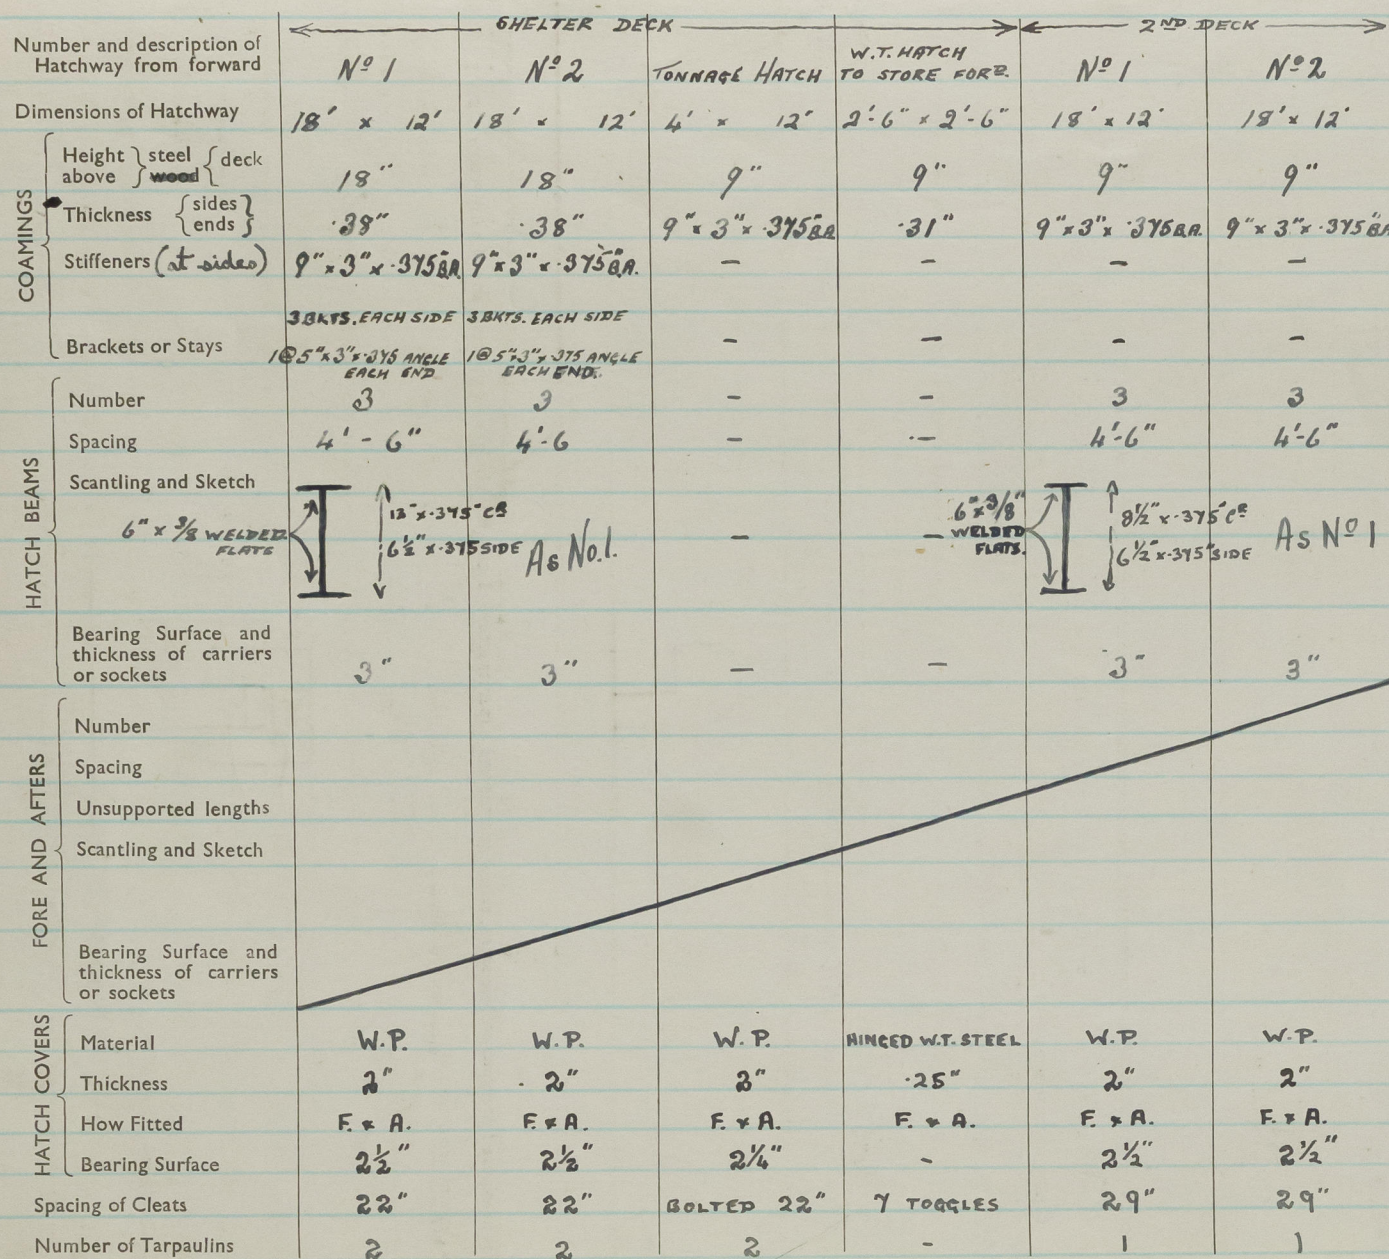 SHELTER DECK 2ND DECK
Number and description of Hatchway from forward Nº 1 Nº 2 TONNAGE HATCH W.T. HATCH TO STORE FORD. Nº 1 Nº 2
Dimensions of Hatchway 18' x 12' 18' x 12' 4' x 12' 2'-6" x 2'-6" 18' x 12' 18' x 12'
COAMINGS
Height above steel wood deck 18" 18" 9" 9" 9" 9"
Thickness sides ends .38" .38" 9" x 3" x .375" B.A. .31" 9" x 3" x .375 B.A. 9" x 3" x .375" BA
Stiffeners (at sides) 9" x 3" x .375" B.A. 9" x 3" x .375" B.A. - - - -
3 BKTS. EACH SIDE 3 BKTS. EACH SIDE
Brackets or Stays - - - -
1 @ 5" x 3" x .375 ANGLE 1 @ 5" x 3" x .375 ANGLE
EACH END EACH END.
HATCH BEAMS
Number 3 3 - - 3 3
Spacing 4' - 6" 4'-6 - - 4'-6" 4'-6"
Scantling and Sketch
6" x 3/8 WELDED FLATS 12" x .375" CR 6½" x .375 SIDE As No.1. - - 6" x 3/8" WELDED FLATS. 8½" x .375" CR 6½" x .375" SIDE As Nº 1
Bearing Surface and
thickness of carriers
or sockets 3" 3" - - 3" 3"
FORE AND AFTERS
Number
Spacing
Unsupported lengths
Scantling and Sketch
Bearing Surface and
thickness of carriers
or sockets
HATCH COVERS
Material W.P. W.P. W.P. HINGED W.T. STEEL W.P. W.P.
Thickness 2" 2" 2" .25" 2" 2"
How Fitted F. & A. F. & A. F. & A. F. & A. F. & A. F. & A.
Bearing Surface 2½" 2½" 2¼" - 2½" 2½"
Spacing of Cleats 22" 22" BOLTED 22" 7 TOGGLES 29" 29"
Number of Tarpaulins 2 2 2 - 1 1